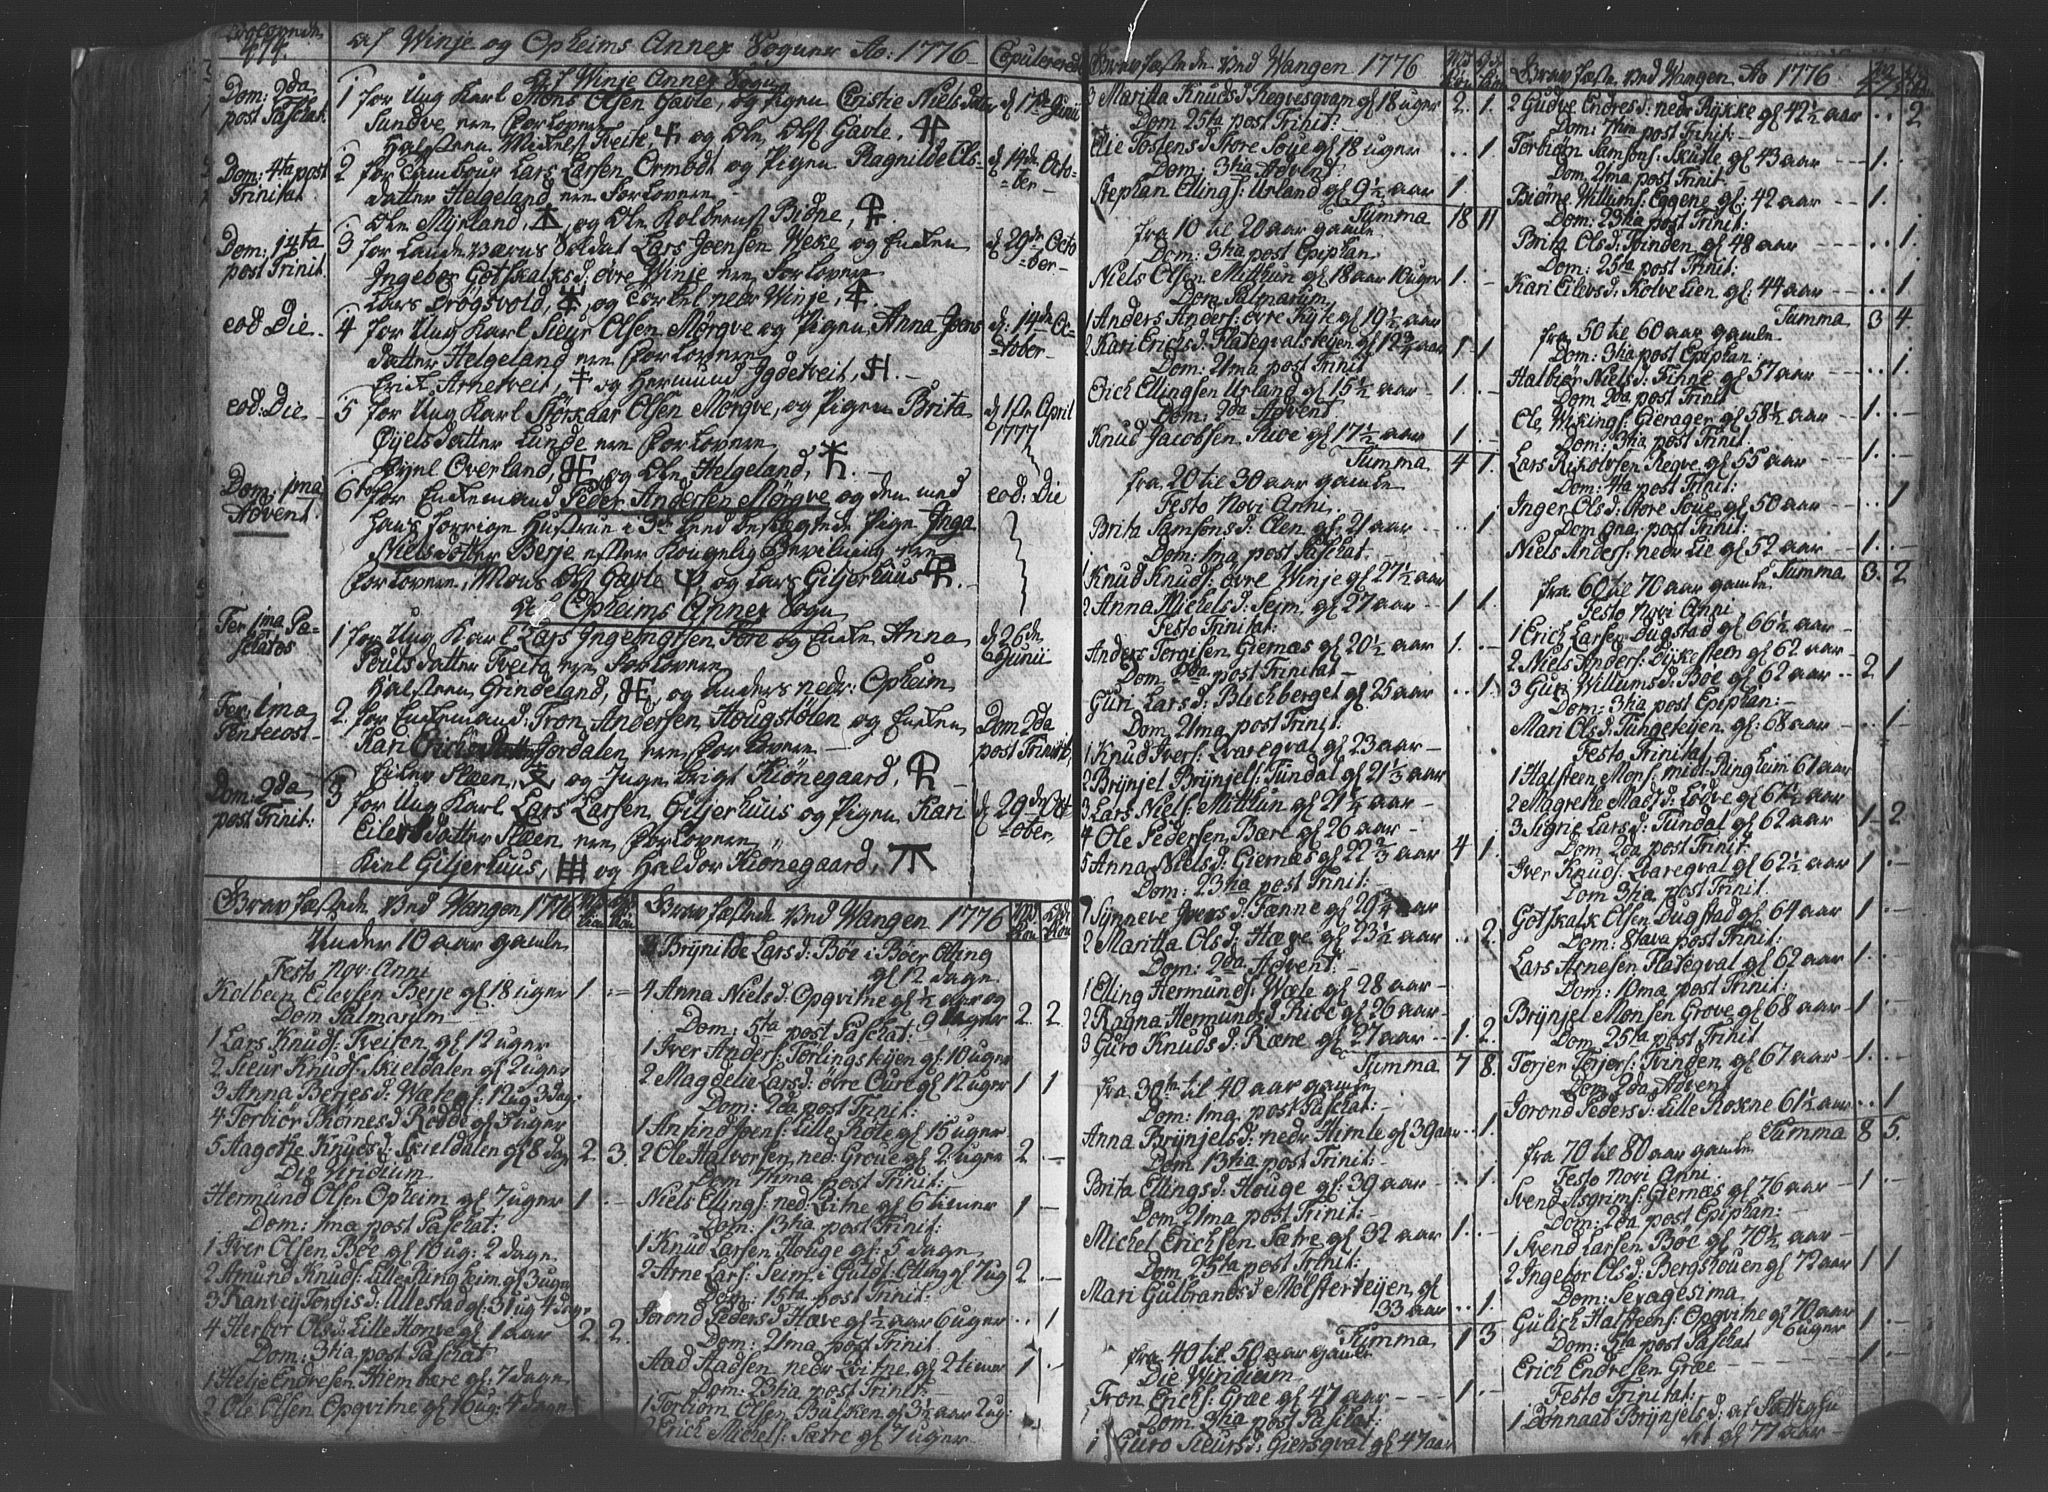 Af Winje og Opheims Annex Sogner Ao: 1776
Copulerede
Af Winje Annex Sogn
Dom: 2da
post Paschat.
1 for Ung Karl Mons Olsen Gavle, og Pigen Cristie Niels datter
Sundve ere forlovere
Halsteen Mikels: Tveite, og Ole Ols: Gavle,
Dom: 4ta post
Trinitat
2 for Tambour Lars Larsen Ormbot og Pigen Ragnilde Els-
datter Helgeland ere forlovere
Ole Mijrland, og Ole Kolbeens: Biöne,
d 14de Octo-
ber
Dom: 14ta
post Trinit.
3 for Landeværns Soldat Lars Joensen Weke og Enken
Ingebor Gotskalksd, övre Winje ere forlovere
Lars Drögsvold, og Torkel nedr Winje,
d 29de Octo
ber
eod Die
4 for Ung Karl Sieur Olsen Mörgve og Pigen Anna Joens
datter Helgeland ere forlovere
Erick Arhetveit, og Hermund Jgdetveit,
d. 14de Oc-
tober
eod: Die
5 for Ung Karl Störkaar Olsen Mörgve, og Pigen Brita
Eyelsdatter Lunde ere forlovere
Overland, og Ole Helgeland,
d 1ste April
1777
Dom. 1ma
Advent.
6 for Enkemand Peder Andersen Mörgve og den med
hans forrige Hustrue i 3de Leed beslegtede Pige Inga
Nielsdotter Berje efter Kongelig Bevilning ere
forlovere, Mons Ols: Gavle, og Lars Giljerhuus
eod: Die
Af Opheims Annex Sogn
Fer 1ma Pa-
schatos
1 for Ung Karl Lars Ingemgsen Tore og Enke Anna
Poulsdatter Tveita ere forlovere
Halsteen Grindeland, og Anders nedr: Opheim
d. 26de
Junii
Fer: 1ma
Pentecost
2. for Enkemand: Tron Andersen Hougstölen og Enken
Kari Jordalen ere forlovere
Eiler Slæen, og Inge Brigt Kiönegaard,
Dom 2da
post Trinit:
Dom: 2da
post Trinit:
3 for Ung Karl Lars Larsen Giljerhuus og Pigen Kari
Eilersdatter Slæen ere forlovere
Kiel Giljerhuus, og Haldor Kiönegaard,
d 29de Oct-
ober
Gravfæstede Ved Wangen 1776
Under 10 aar gamle
Festo Nov: Anni
Kolbeen Eilersen Berje gl 18 uger 1.
Dom Palmarum
1 Lars Knuds: Tveiten gl 12 uger
2 Sieur Knuds: Skieldalen gl 2 uger
3 Anna Berjesd: Wæte gl: 1 ug 3 dag:
4 Torbiör Biörnesd Rödde gl 3 uger
5 Aagothe Knudsd: Skieldalen gl 8 dag 2. 3.
Die Viridium
Hermund Olsen Opheim gl 7 uger 1
Dom: 1ma post Paschat:
1 Iver Olsen Böe gl 10 ug: 2 dage
2 Amund Knuds: Lille Ringheim gl 3 uger
3 Ranveij Torgisd: Ullestad gl: 31 ug 4 dage
4 Herbor Olsd: Lille Honve gl 1 aar 2 2
Dom: 3tia post Paschat
1 Helje Endresen Hiembære gl: 7 dage
2 Ole Olsen Opqvitne gl 16 ug: 4 dage
Gravfæstede Ved Wangen 1776
3 Brijnilde Larsd: Böe i Böer Otting
gl 12 dage
4 Anna Nielsd: Opqvitne gl ½ aar og
9 uger 2 2
Dom: 5ta post Paschat:
1 Iver Anders: Törlingsteijen gl 10 uger
2 Magdelie Larsd: övre Oure gl 12 uger 1 1
Dom: 2da post Trinit:
1 Anfind Joens: Lille Röte gl 15 uger
2 Ole Halvorsen ned: Groue gl 2 uger 2
Dom 7tima post Trinit:
Niels Ellings: ned: Litne gl 6 timer 1
Dom: 13tia post Trinit:
1 Knud Larsen Houge gl: 5 dage
2 Arne Lars: Seim i Gulds: Otting gl 7 ug 2
Dom: 15ta post Trinit:
Jorond Pedersd Hæve gl ½ aar 6 uger 1
Dom: 21ma post Trinit:
Aad Aadsen nedr Litne gl 2 timer 1
Dom: 23tia post Trinit:
1 Torbiörn Olsen Bulken gl 3½ aar 2 ug:
2 Erich Michels: Sætre gl 7 uger
Gravfæstede Ved Wangen 1776
3 Maritta Knudsd Regvesqvam gl 18 uger 2. 1.
Dom 25ta post Trinit:
Elie Tostensd Store Soue gl 18 uger 1
Dom: 3tia Advent:
Stephan Ellings: Urland gl 9½ aar 1.
Summa 18 11
fra 10 til 20 aar gamle
Dom: 3tia post Epiphan
Niels Olsen Mitthun gl 18 aar 10 uger 1
Dom Palmarum
1 Anders Anders: övre Kyte gl 19½ aar
2 Kari Erichsd: Flateqvalsteijen gl 12¾ aar 1 1
Dom: 21ma post Trinit
Erich Ellingsen Urland gl 15½ aar 1.
Dom: 2da Advent
Knud Jacobsen Rioe gl 17½ aar 1
Summa 4 1.
fra 20 til 30 aar gamle
Festo Novi Anni
Brita Samsonsd: Olen gl 21 aar 1.
Dom: 1ma post Paschat:
1 Knud Knuds: övre Winje gl 27½ aar
2 Anna Michelsd: Seim gl 27 aar 1 1.
Festo Trinitat:
Anders Torgisen Giernæs gl 20½ aar 1.
Dom 9da post Trinitat
Guri Larsd: Blichberget gl 25 aar 1.
Dom: 21ma post Trinit:
1 Knud Ivers: Lvareqval gl 23 aar
2 Brijnjel Brijnjels: Tundal gl 21⅓ aar
3 Lars Niels: Mitthun gl 21½ aar
4 Ole Pedersen Bære gl 26 aar
5 Anna Nielsd: Giernæs gl 22⅔ aar 4 1.
Dom: 23tia post Trinit:
1 Synneve Iversd: Fænne gl 29¾ aar
2 Maritta Olsd: Hæge gl 23½ aar 2.
Dom: 2da Advent:
1 Elling Hermunds: Wæle gl 28 aar
2 Ragna Hermundsd Rioe gl 26 aar
3 Guro Knudsd: Ræne gl 27 aar 1. 2.
Summa 7 8.
fra 30te til 40 aar gamle
Dom: 1ma post Paschat:
Anna Brijnjelsd: nedr Himle gl 39 aar 1.
Dom 13tia post Trinit:
Brita Ellingsd: Houge gl: 39 aar 1
Dom 21ma post Trinit:
Michel Erichsen Sætre gl 32 aar 1
Dom 25ta post Trinit:
Mari Gulbrandsd Molsterteijen gl
33 aar 1.
Summa 1 3
fra 40 til 50 aar gamle
Die Viridium
Tron Erichs: Græe gl 47 aar 1.
Dom: 3tia post Paschat:
1 Guro Sieursd: Giersqval gl 47 aar
Gravfæste Ved Wangen Ao 1776
2 Gudve Endresd: nedr Rykke gl 42½ aar 2
Dom: 7tima post Trinit
Torbiörn Samsons: Skutle gl 43 aar 1.
Dom 21ma post Trinit
Biörne Willums: Eggene gl: 42 aar 1.
Dom: 23tia post Trinit:
Brita Olsd: Trinden gl 48 aar 1.
Dom: 25ta post Trinit:
Kari Eilevsd: Kolvelien gl: 44 aar 1
Summa 3 4.
fra 50 til 60 aar gamle
Dom: 3tia post Epiphan:
Halbiör Nielsd: Finne gl 57 aar 1
Dom 2da post Trinit
Ole Wikings: Gierager gl 58½ aar 1
Dom: 3tia post Trinit
Lars Rikolvsen Regve gl 55 aar 1.
Dom: 4ta post Trinit:
Inger Olsd: Store Soue gl 50 aar 1
Dom 9na post Trinit:
Niels Anders: nedr Lie gl 52 aar 1.
Summa 3. 2
fra 60 til 70 aar gamle
Festo Novi Anni
1 Erich Larsen Dugstad gl 66½ aar
2 Niels Anders: Dykesteen gl 62 aar
3 Guri Willumsd: Böe gl 62 aar 2 1
Dom: 3tia post Epiphan:
Mari Olsd: Tungeteijen gl: 68 aar 1
Festo Trinitat
1 Halsteen Mons: midt Ringheim 61 aar
2 Magrethe Madsd: Lödve gl 67½ aar
3 Signe Larsd: Tundal gl 62 aar 1 2
Dom: 2da post Trinit:
Iver Knuds: Lvareqval gl 62½ aar 1
Dom 3tia post Trinit.
Gotskalk Olsen Dugstad gl 64 aar 1.
Dom: 8tava post Trinit:
Lars Arnesen Flateqval gl 62 aar 1.
Dom: 10ma post Trinit:
Brijnjel Monsen Grove gl 68 aar 1
Dom 25ta post Trinit
Torjer Torjers: Trinden gl 67 aar 1.
Dom 2da Advent
Jorond Pedersd: Lille Rokne 61½ aar 1
Summa 8 5.
fra 70 til 80 aar gamle
Festo Novi Anni
Svend Asgrims: Giernæs gl 76 aar 1
Dom: 2da post Epiphan:
1 Svend Larsen Böe gl 70½ aar
2 Ingebor Olsd: Bergshouen gl 72 aar 1 1
Dom: Sexagesima
Gulich Halsteens: Opqvitne gl 70 aar
6 uger
Dom: 5ta post Paschat
Erich Endresen Græe 1
Festo Trinitat:
1 Donnaat Brijnjelsd: af
gl 77 aar